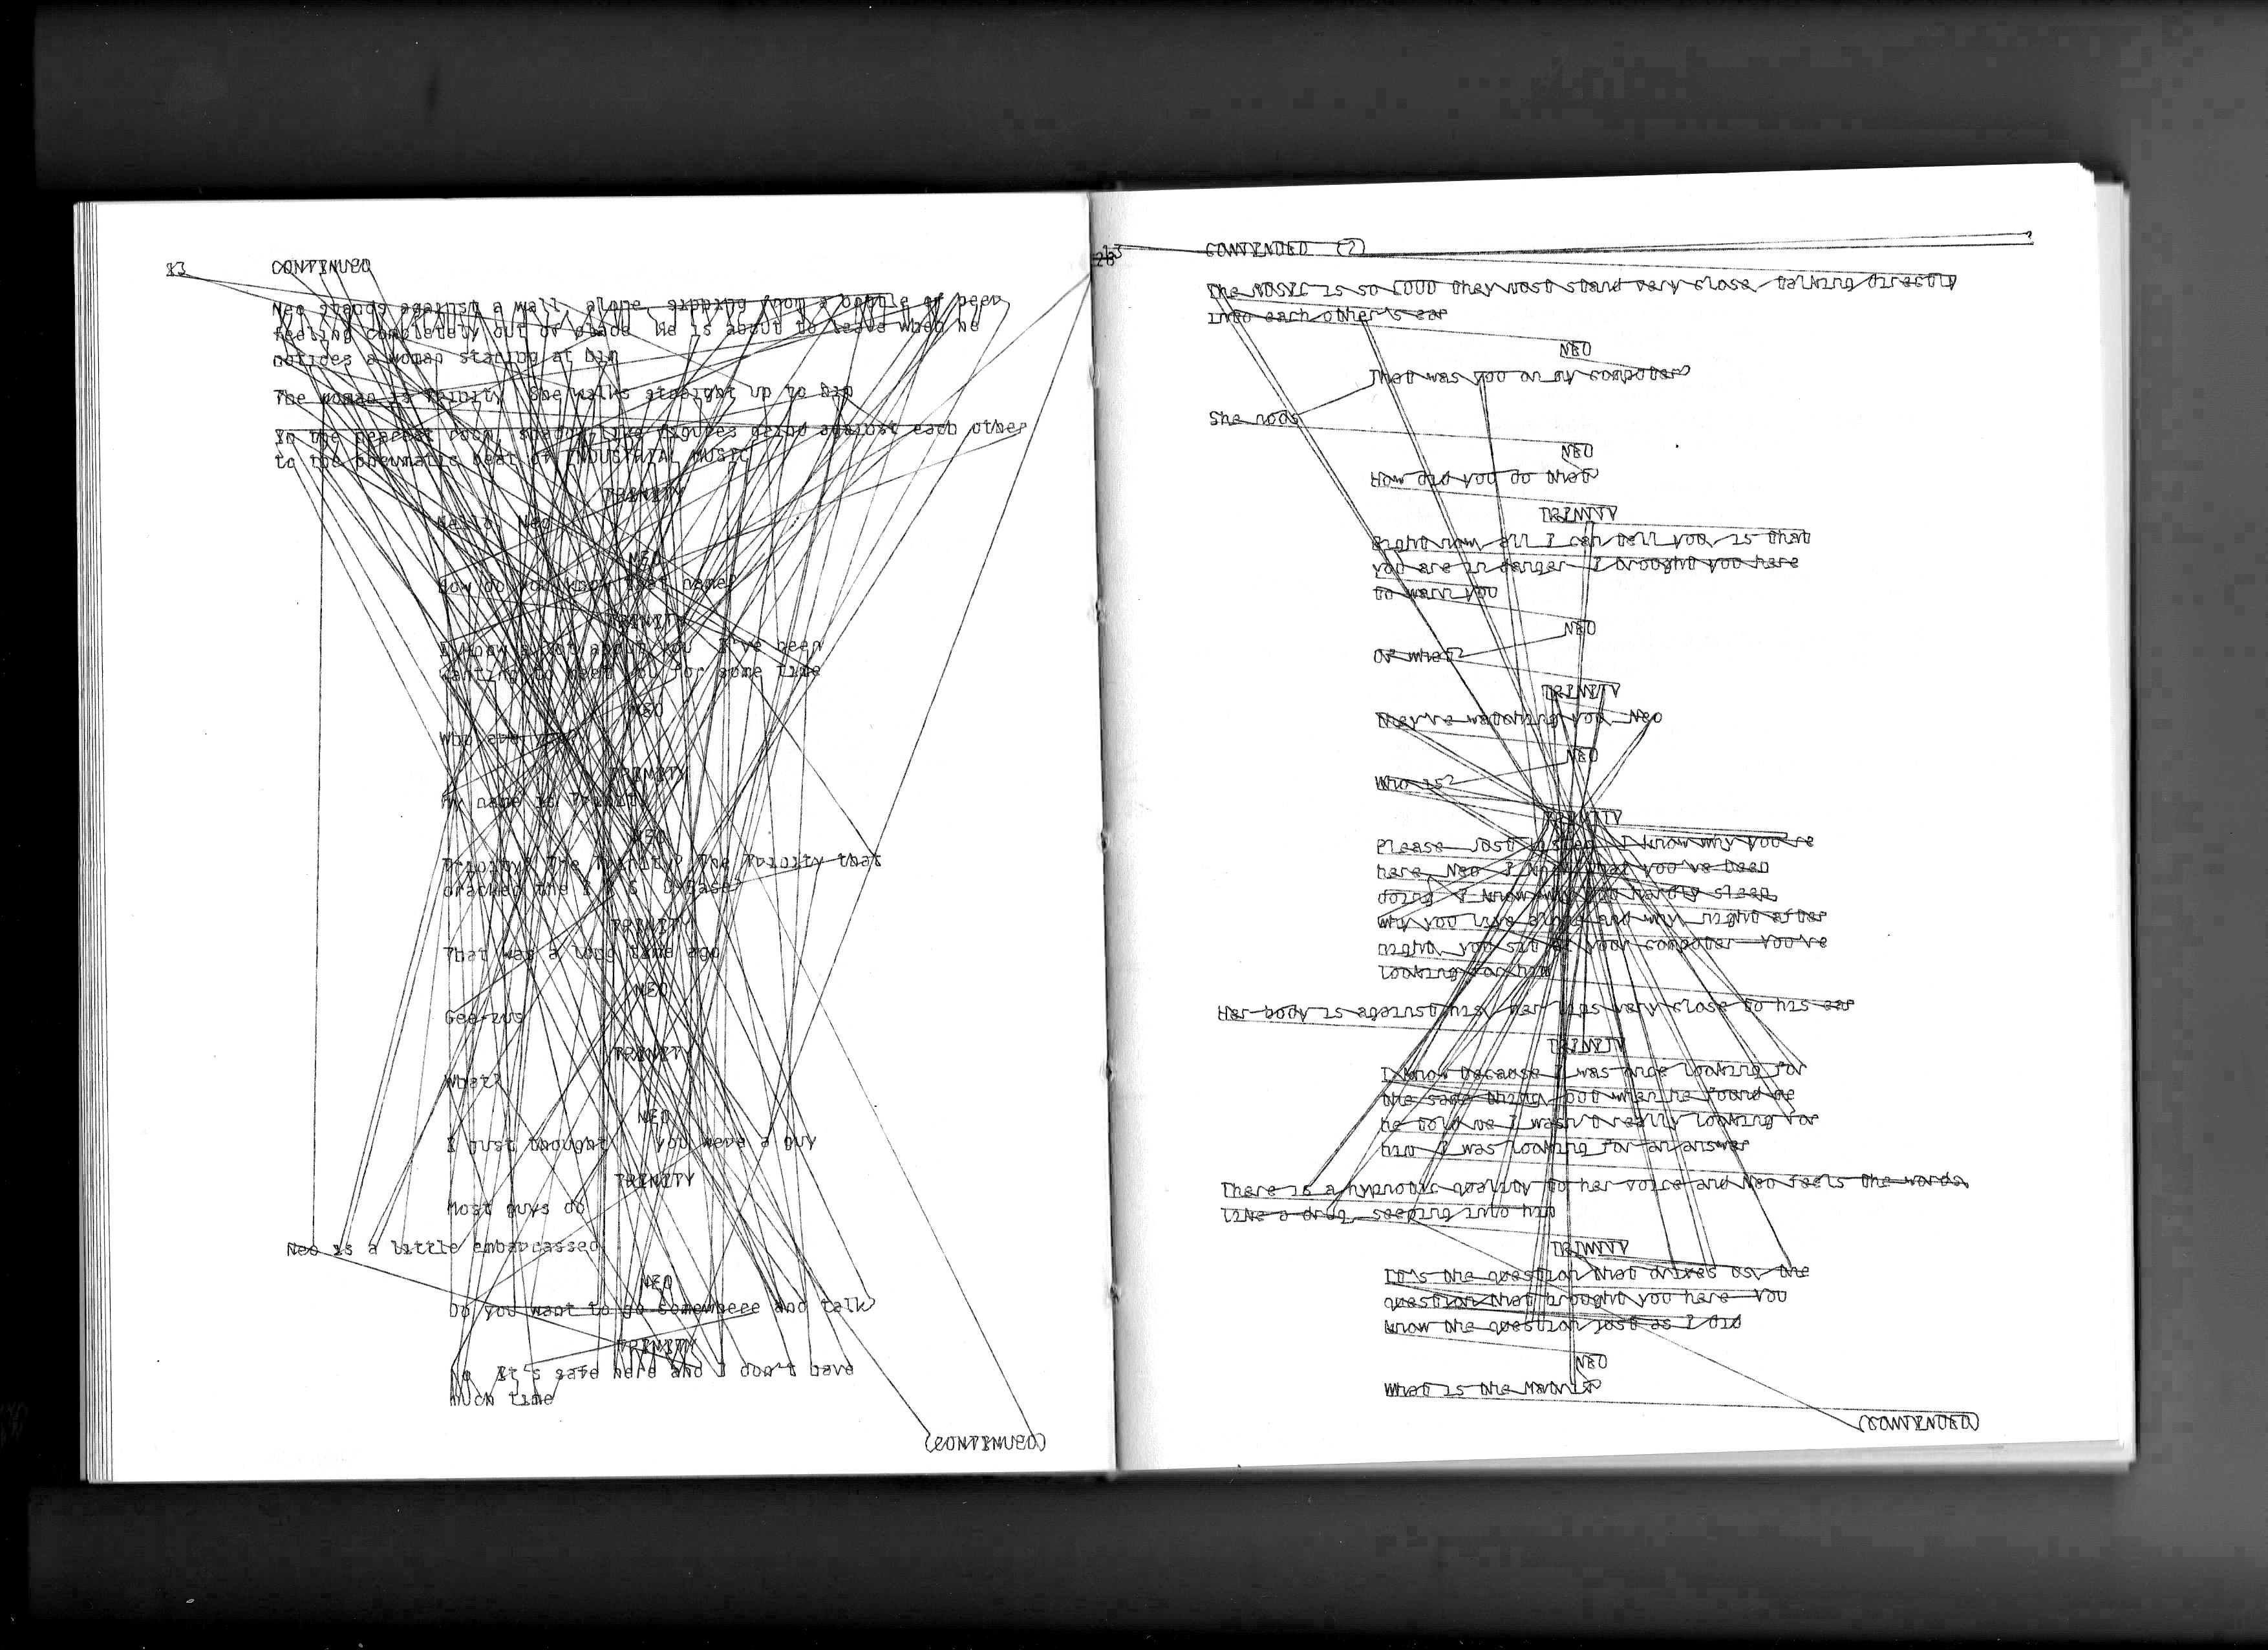 13 CONTINUED
Neo stands against a wall, alone, sipping from a bottle of beer
feeling completely out of place He is about to leave when he
notices a woman staring at him
The woman is Trinity She walks straight up to him
In the nearest room, shadow-like figures grind against each other
to the pneumatic beat of INDUSTRIAL MUSIC
TRINITY
Hello, Neo
NEO
How do you know that name?
TRINITY
I know a lot about you I've been
wanting to meet you for some time
NEO
Who are you?
TRINITY
My name is Trinity
NEO
Trinity? The Trinity? The Trinity that
cracked the I R S D-Base?
TRINITY
That was a long time ago
NEO
Gee-zus
TRINITY
What?
NEO
I just thought you were a guy
TRINITY
Most guys do
Neo is a little embarrassed
NEO
Do you want to go somewhere and talk?
TRINITY
No It's safe here and I don't have
much time
(CONTINUED)
CONTINUED (2)
The MUSIC is so LOUD they must stand very close, talking directly
into each other's ear
NEO
That was you on my computer?
She nods
NEO
How did you do that?
TRINITY
Right now, all I can tell you, is that
you are in danger I brought you here
to warn you
NEO
Of what?
TRINITY
They're watching you, Neo
NEO
Who is?
TRINITY
Please just listen I know why you're
here, Neo I know what you've been
doing I know why you hardly sleep,
why you live alone and why, night after
night, you sit at your computer You're
looking for him
Her body is against his, her lips very close to his ear
TRINITY
I know because I was once looking for
the same thing, but when he found me
he told me I wasn't really looking for
him I was looking for an answer
There is a hypnotic quality to her voice and Neo feels the words,
like a drug, seeping into him
TRINITY
It's the question that drives us, the
question that brought you here You
know the question just as I did
NEO
What is the Matrix?
(CONTINUED)